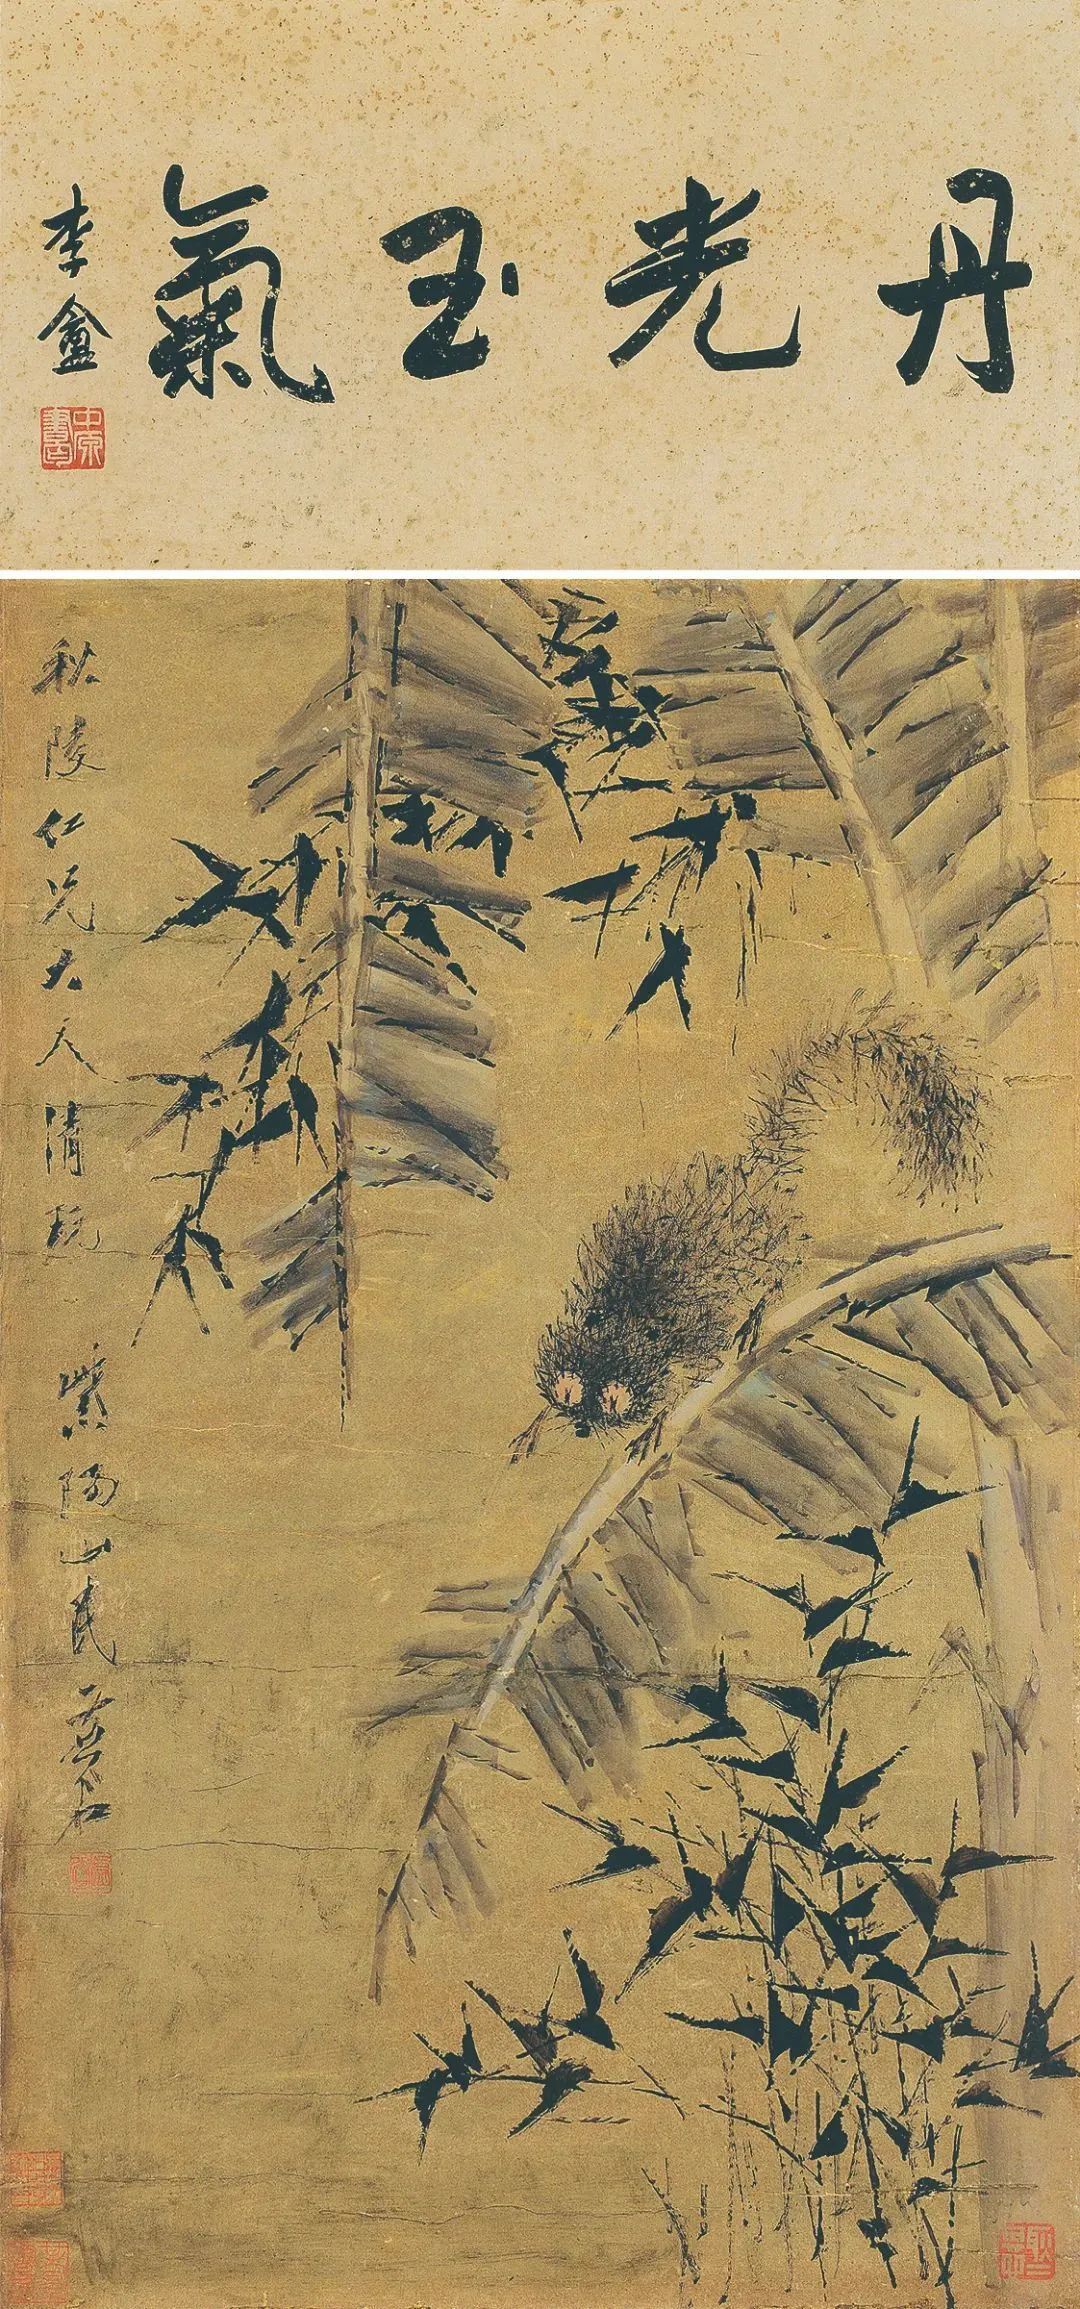 丹光玉氣
李盦
中原書印
秋陵仁兄大人清玩
紫陽山民